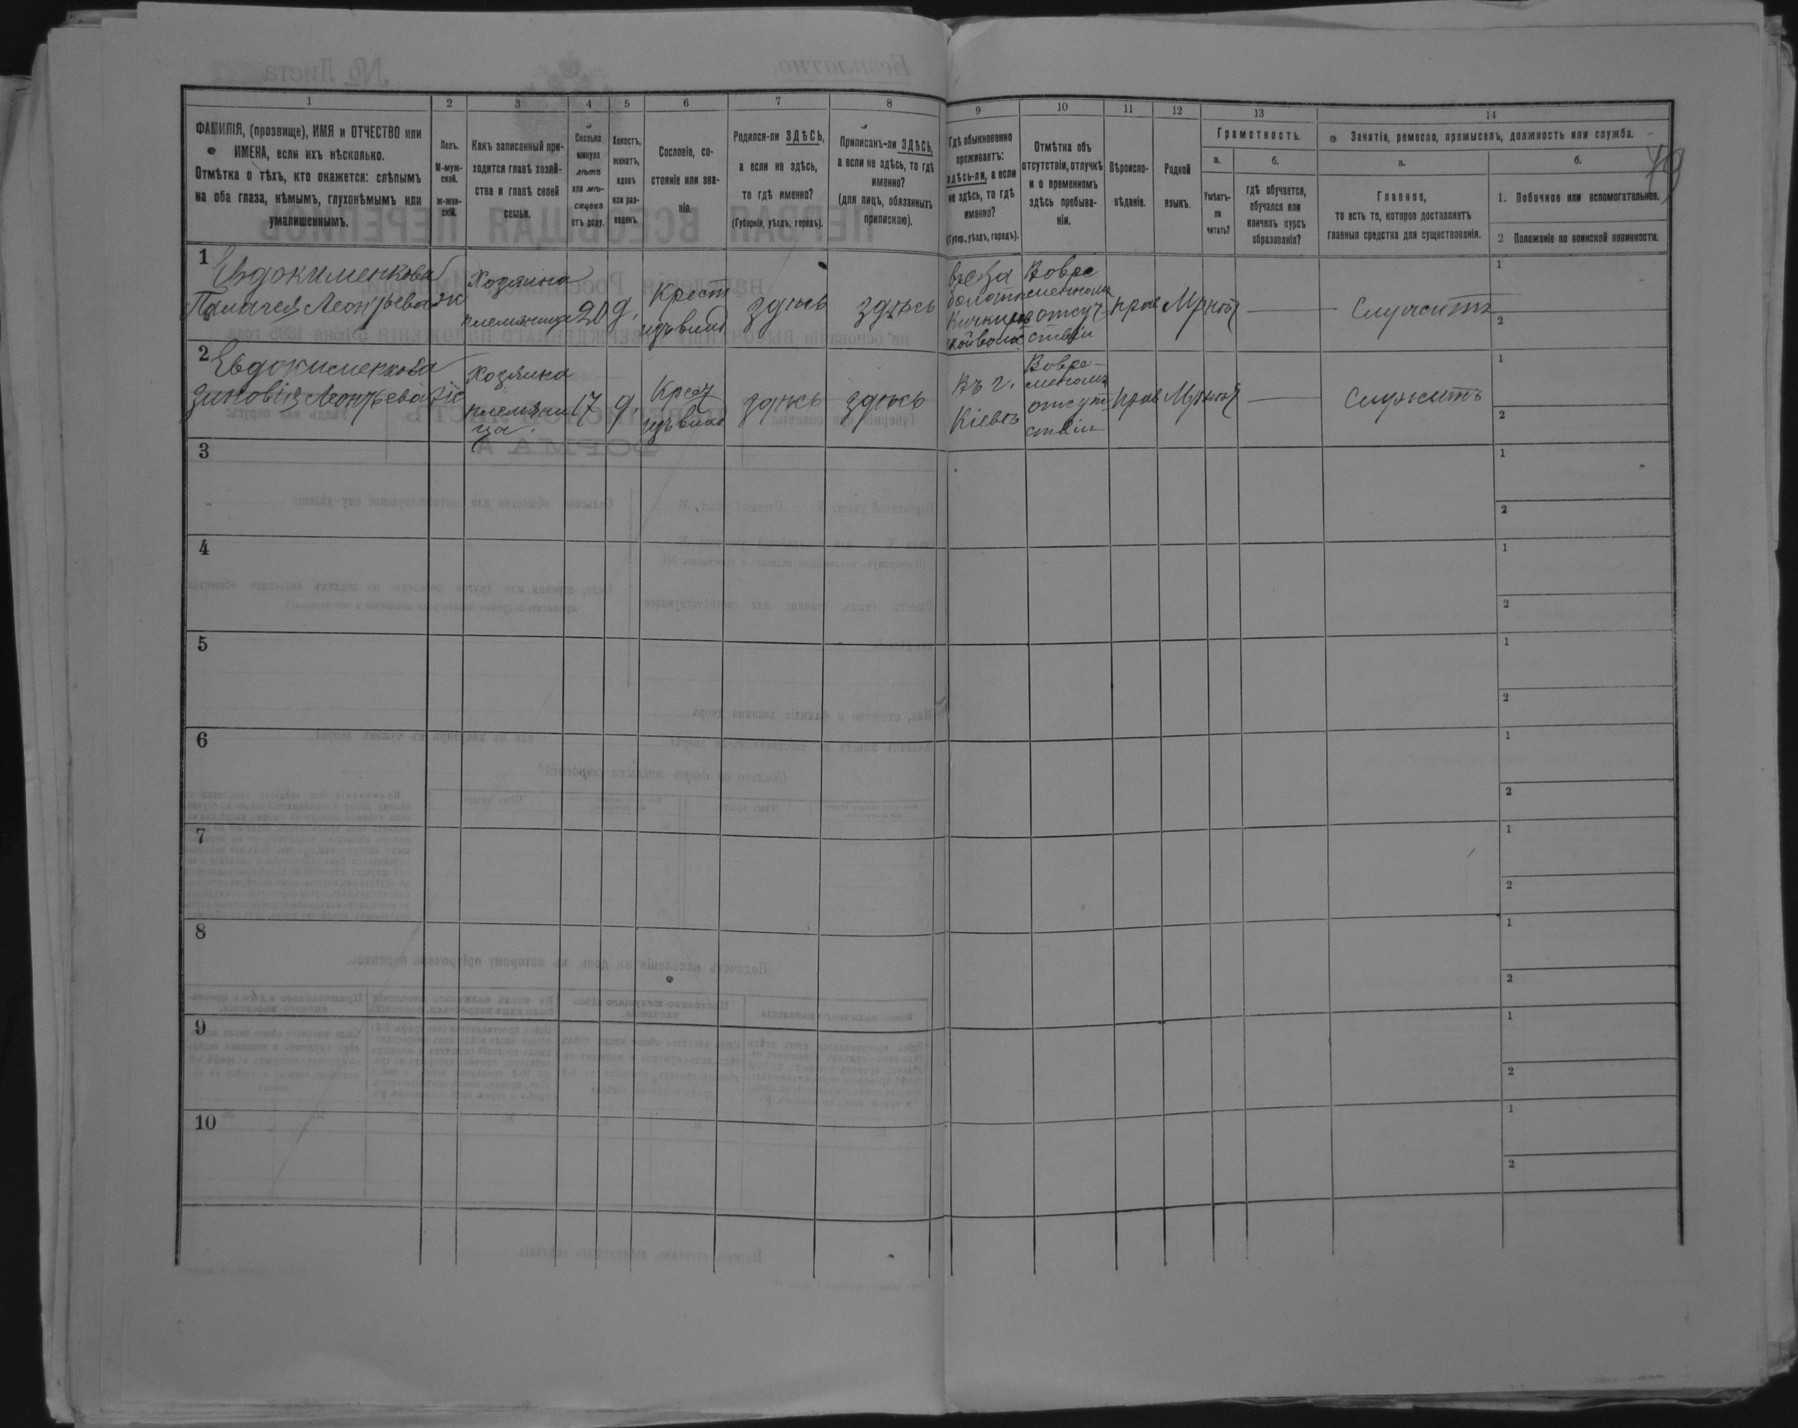 1 2 3 4 5 6 7 8 9 10 11 12 13 14
ФАМИЛІЯ, (прозвище), ИМЯ и ОТЧЕСТВО или
ИМЕНА, если ихъ нѣсколько.
Отмѣтка о тѣхъ, кто окажется: слѣпымъ
на оба глаза, нѣмымъ, глухонѣмымъ или
умалишеннымъ.
Полъ.
М-муж-
ской.
ж-жен-
скій.
Какъ записанный при-
ходится главѣ хозяй-
ства и главѣ своей
семьи.
Сколько
минуло
лѣтъ
или мѣ-
сяцевъ
отъ роду.
Холостъ,
женатъ,
вдовъ
или раз-
веденъ.
Сословіе, со-
стояніе или зва-
ніе.
Родился-ли ЗДѢСЬ,
а если не здѣсь,
то гдѣ именно?
(Губернія, уѣздъ, городъ).
Приписанъ-ли ЗДѢСЬ,
а если не здѣсь, то гдѣ
именно?
(для лицъ, обязанныхъ
припискою).
Гдѣ обыкновенно
проживаетъ:
здѣсь-ли, а если
не здѣсь, то гдѣ
именно?
(Губер., уѣздъ, городъ).
Отмѣтка объ
отсутствіи, отлучкѣ
и о временномъ
здѣсь пребыва-
ніи.
Вѣроиспо-
вѣданіе.
Родной
языкъ.
Грамотность.
а.
Умѣетъ-
ли
читать?
б.
гдѣ обучается,
обучался или
кончилъ курсъ
образованія?
Занятія, ремесло, промыселъ, должность или служба.
а.
Главное,
то есть то, которое доставляетъ
главныя средства для существованія.
б.
1. Побочное или вспомогательное.
2 Положеніе по воинской повинности.
79
1
Евдокименкова
Леонтьева
ж
Хозяина
племянница
20
д.
Крест
изъ влад
здѣсь
здѣсь
Вовре
менномъ
отсут
ствіи
прав
Служитъ
1
2
2
Евдокименкова
Зиновія Леонтьева
ж
Хозяина
племянни
ца.
17
д.
Крест
изъ влад
здѣсь
здѣсь
Въ г.
Кіевѣ
Вовре-
менномъ
отсут
ствіи
прав
Служитъ
1
2
3
1
2
4
1
2
5
1
2
6
1
2
7
1
2
8
1
2
9
1
2
10
1
2